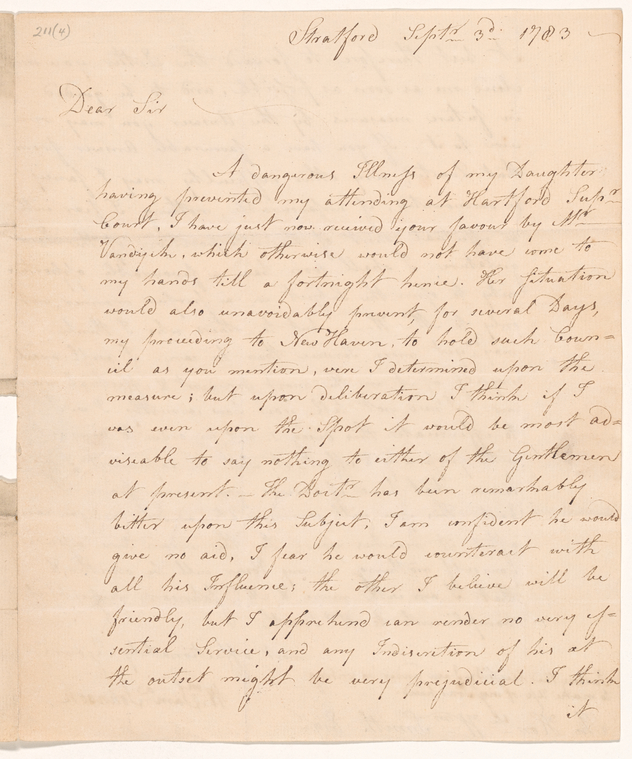 211(4)
Stratford Septr. 3d. 1783
Dear Sir
A dangerous Illness of my Daughter
having prevented my attending at Hartford Supr.
Court, I have just now received your favour by Mr.
which otherwise would not have come to
my hands till a fortnight hence. Her situation
would also unavoidably prevent for several Days,
my proceeding to New Haven, to hold such Coun=
cil as you mention, were I determined upon the
measure; but upon deliberation I think if I
was even upon the Spot it would be most ad=
viseable to say nothing to either of the Gentlemen
at present. — The Doctr. has been remarkably
bitter upon this Subject, I am confident he would
give no aid, I fear he would counteract with
all his Influence; the other I believe will be
friendly, but I apprehend can render no very es=
sential Service, and any Indiscretion of his at
the outset might be very prejudicial. I think
it